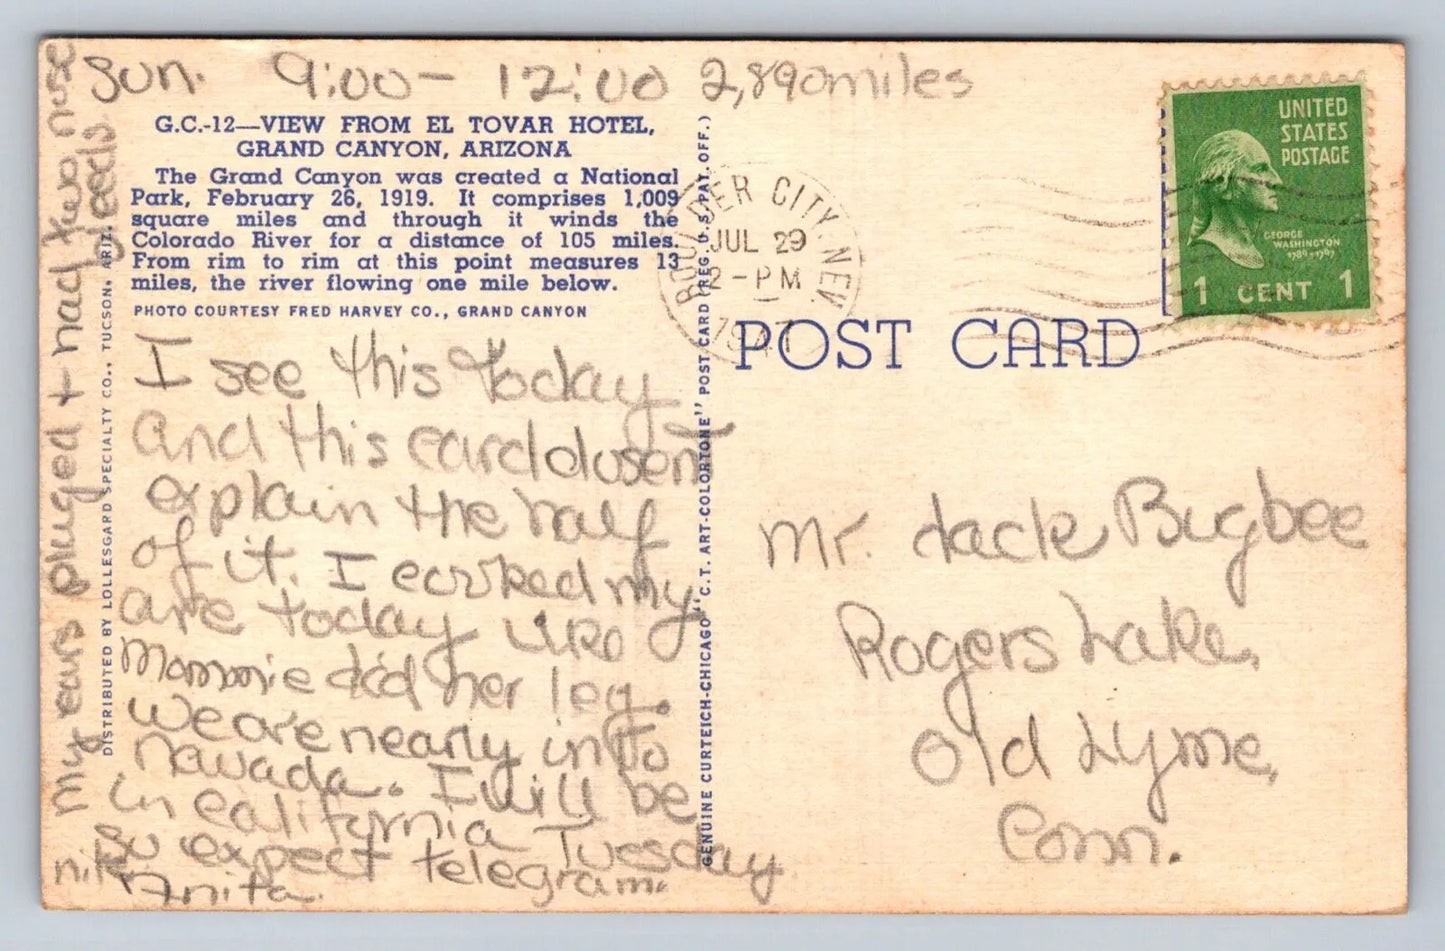 Sun. 9:00 - 12:00 2,890 miles
G.C.-12—VIEW FROM EL TOVAR HOTEL,
GRAND CANYON, ARIZONA
The Grand Canyon was created a National
Park, February 26, 1919. It comprises 1,009
square miles and through it winds the
Colorado River for a distance of 105 miles.
From rim to rim at this point measures 13
miles, the river flowing one mile below.
PHOTO COURTESY FRED HARVEY CO., GRAND CANYON
I see this today
and this card dusent
explain the half
of it. I my
are today like
Mommie did her leg.
We are nearly into
Navada. I will be
in California Tuesday
nite so expect telegram.
Anita.
My ears pluged + had two nose
bleeds.
DISTRIBUTED BY LOLLESGARD SPECIALTY CO., TUCSON, ARIZ.
GENUINE CURTEICH-CHICAGO "C.T. ART-COLORTONE" POST CARD (REG. U.S. PAT. OFF.)
BOULDER CITY. NEV.
JUL 29
2-PM
1947
UNITED
STATES
POSTAGE
GEORGE
WASHINGTON
1789-1797
1 CENT 1
POST CARD
Mr. Jack Bugbee
Rogers Lake,
Old Lyme,
Conn.